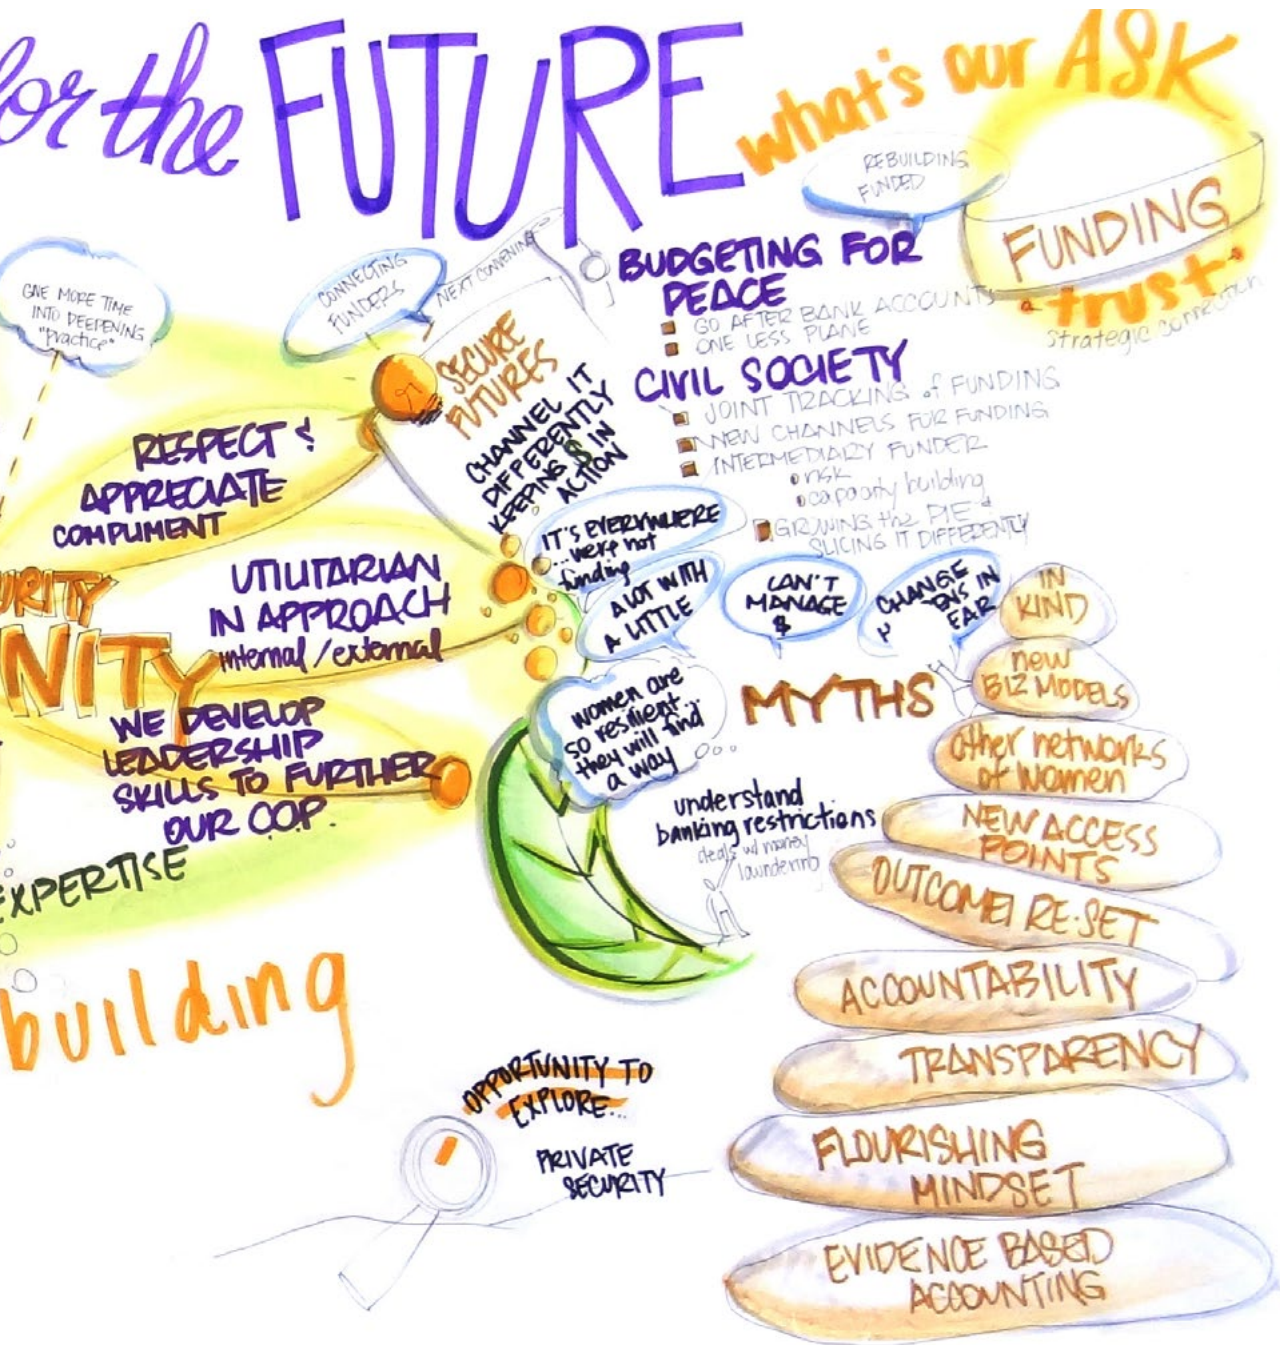 for the FUTURE
what's our ASK
REBUILDING
FUNDED
FUNDING
trust
strategic connection
GIVE MORE TIME
INTO DEEPENING
"practice"
CONNECTING
FUNDERS
NEXT CONVENING
SECURE
FUTURES
CHANNEL IT
DIFFERENTLY
KEEPING $ IN
ACTION
BUDGETING FOR
PEACE
GO AFTER BANK ACCOUNTS
ONE LESS PLANE
CIVIL SOCIETY
JOINT TRACKING of FUNDING
NEW CHANNELS FOR FUNDING
INTERMEDIARY FUNDER
risk
capacity building
GROWING the PIE &
SLICING IT DIFFERENTLY
RESPECT &
APPRECIATE
COMPLIMENT
URITY
NITY
UTILITARIAN
IN APPROACH
internal/external
WE DEVELOP
LEADERSHIP
SKILLS TO FURTHER
OUR COP.
EXPERTISE
building
IT'S EVERYWHERE
...were not
funding
A LOT WITH
A LITTLE
CAN'T
MANAGE
$
CHANGE
IN
EAR
women are
so resilient...
they will find
a way
MYTHS
understand
banking restrictions
deals w/ money
laundering
IN
KIND
new
BIZ MODELS
other networks
of women
NEW ACCESS
POINTS
OUTCOME RE-SET
ACCOUNTABILITY
TRANSPARENCY
FLOURISHING
MINDSET
EVIDENCE BASED
ACCOUNTING
OPPORTUNITY TO
EXPLORE...
PRIVATE
SECURITY